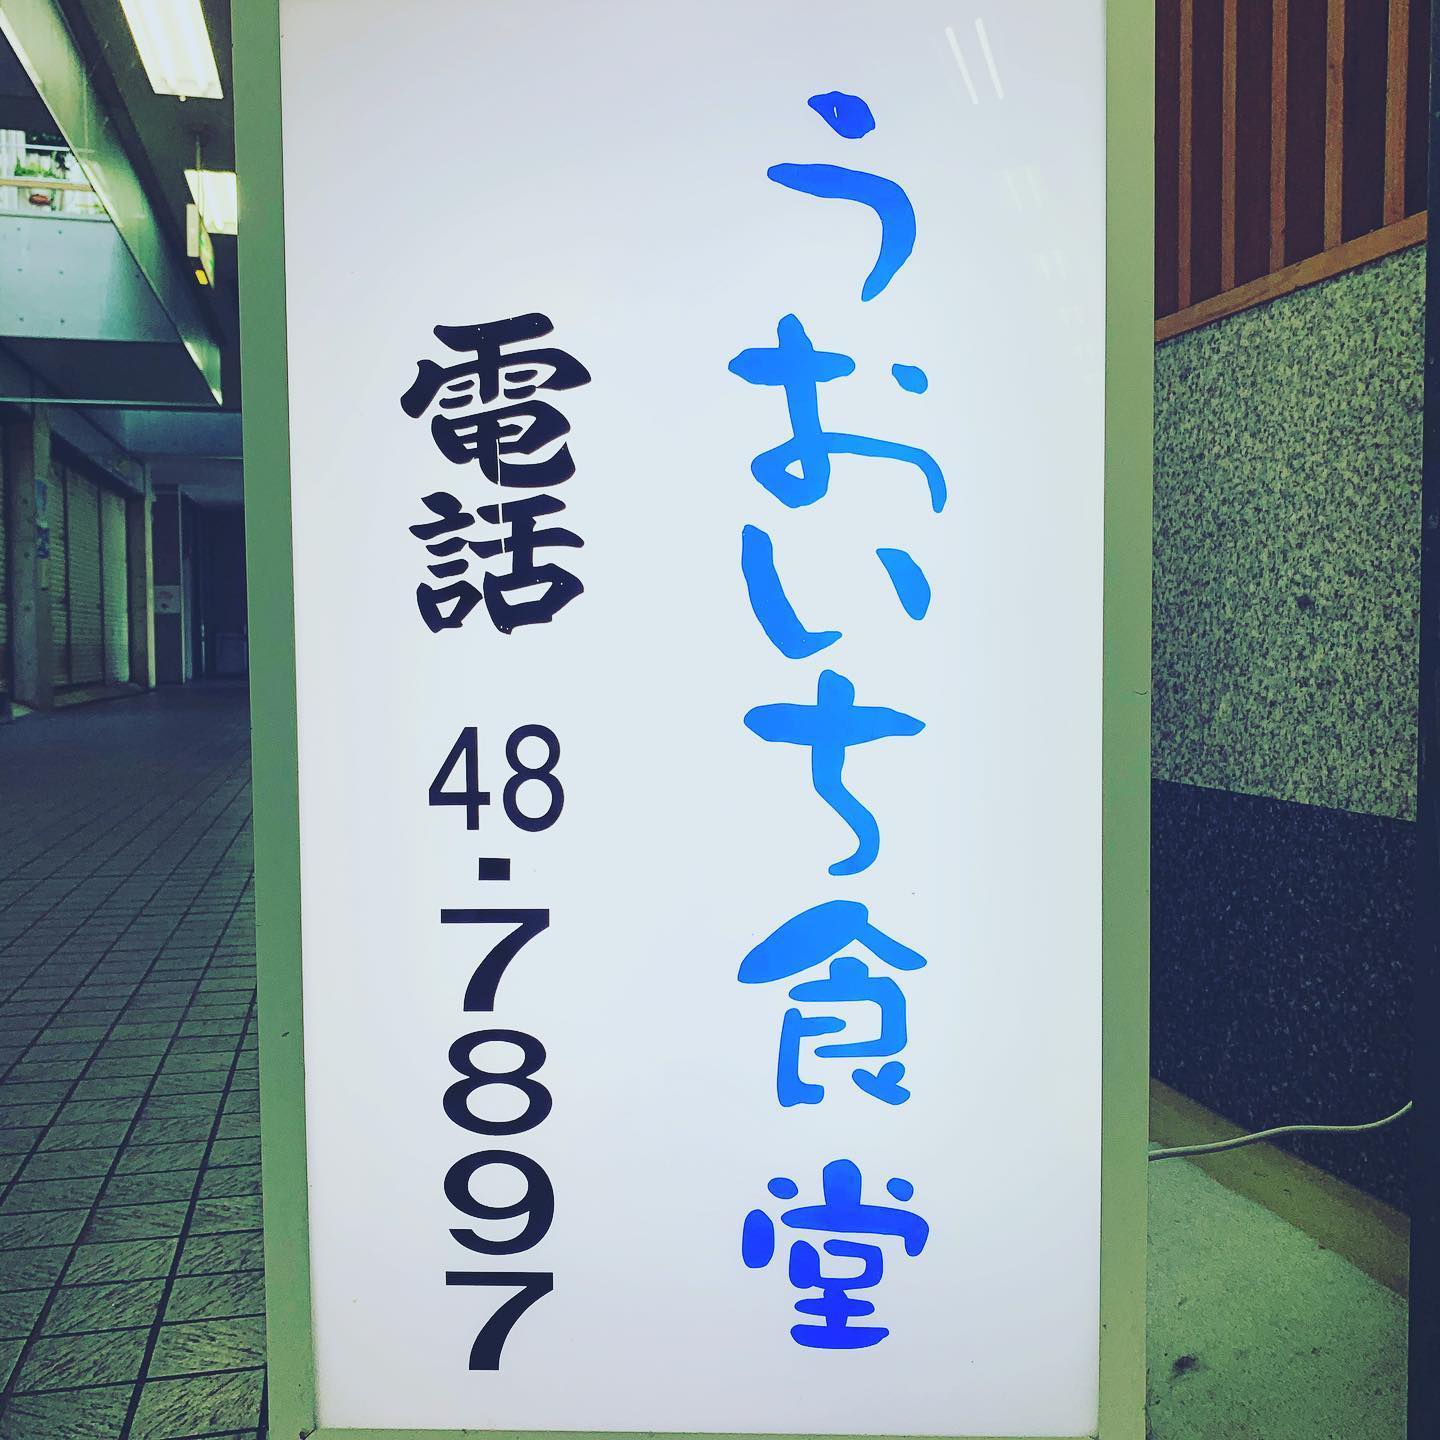 うおいち食堂
電話 48・7897